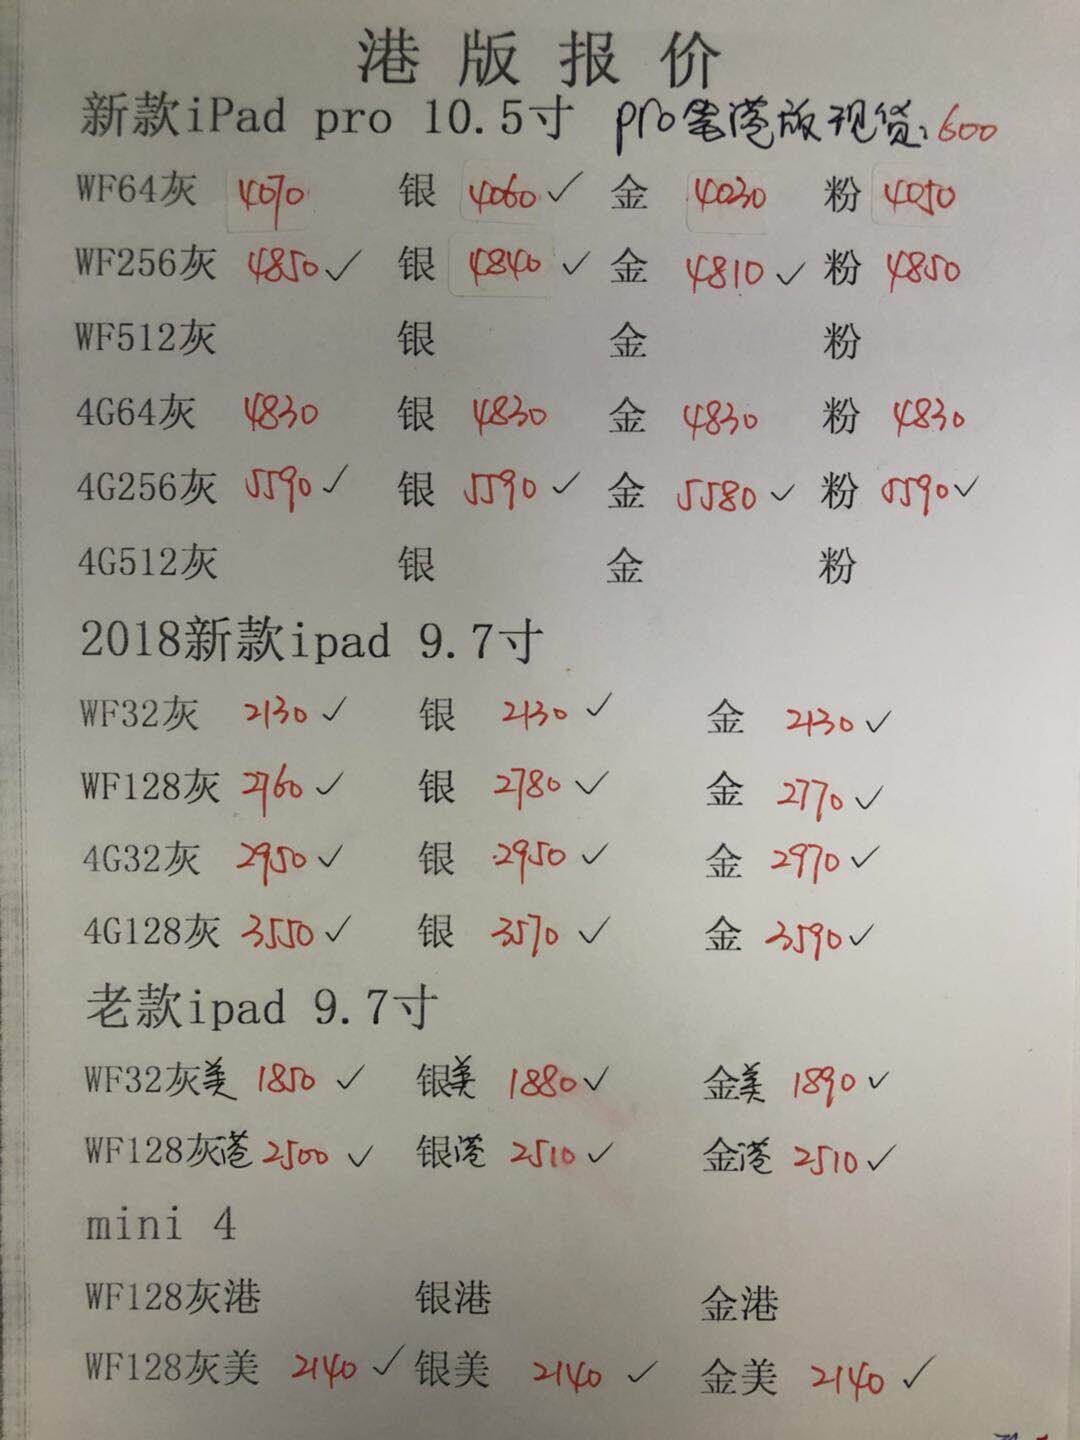 港版报价
新款iPad pro 10.5寸 pro笔港版现货:600
WF64灰 4070 银 4060 ✓ 金 4030 粉 4050
WF256灰 4850 ✓ 银 4840 ✓ 金 4810 ✓ 粉 4850
WF512灰 银 金 粉
4G64灰 4830 银 4830 金 4830 粉 4830
4G256灰 5590 ✓ 银 5590 ✓ 金 5580 ✓ 粉 5590 ✓
4G512灰 银 金 粉
2018新款ipad 9.7寸
WF32灰 2130 ✓ 银 2130 ✓ 金 2130 ✓
WF128灰 2760 ✓ 银 2780 ✓ 金 2770 ✓
4G32灰 2950 ✓ 银 2950 ✓ 金 2970 ✓
4G128灰 3550 ✓ 银 3570 ✓ 金 3590 ✓
老款ipad 9.7寸
WF32灰美 1850 ✓ 银美 1880 ✓ 金美 1890 ✓
WF128灰港 2500 ✓ 银港 2510 ✓ 金港 2510 ✓
mini 4
WF128灰港 银港 金港
WF128灰美 2140 ✓ 银美 2140 ✓ 金美 2140 ✓